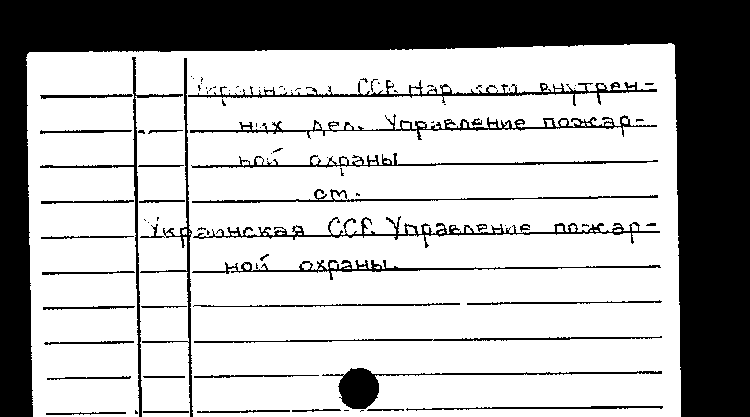 Украинская ССР. Нар. ком. внутрен-
них дел. Управление пожар-
ной охраны
см.
Украинская ССР. Управление пожар-
ной охраны.